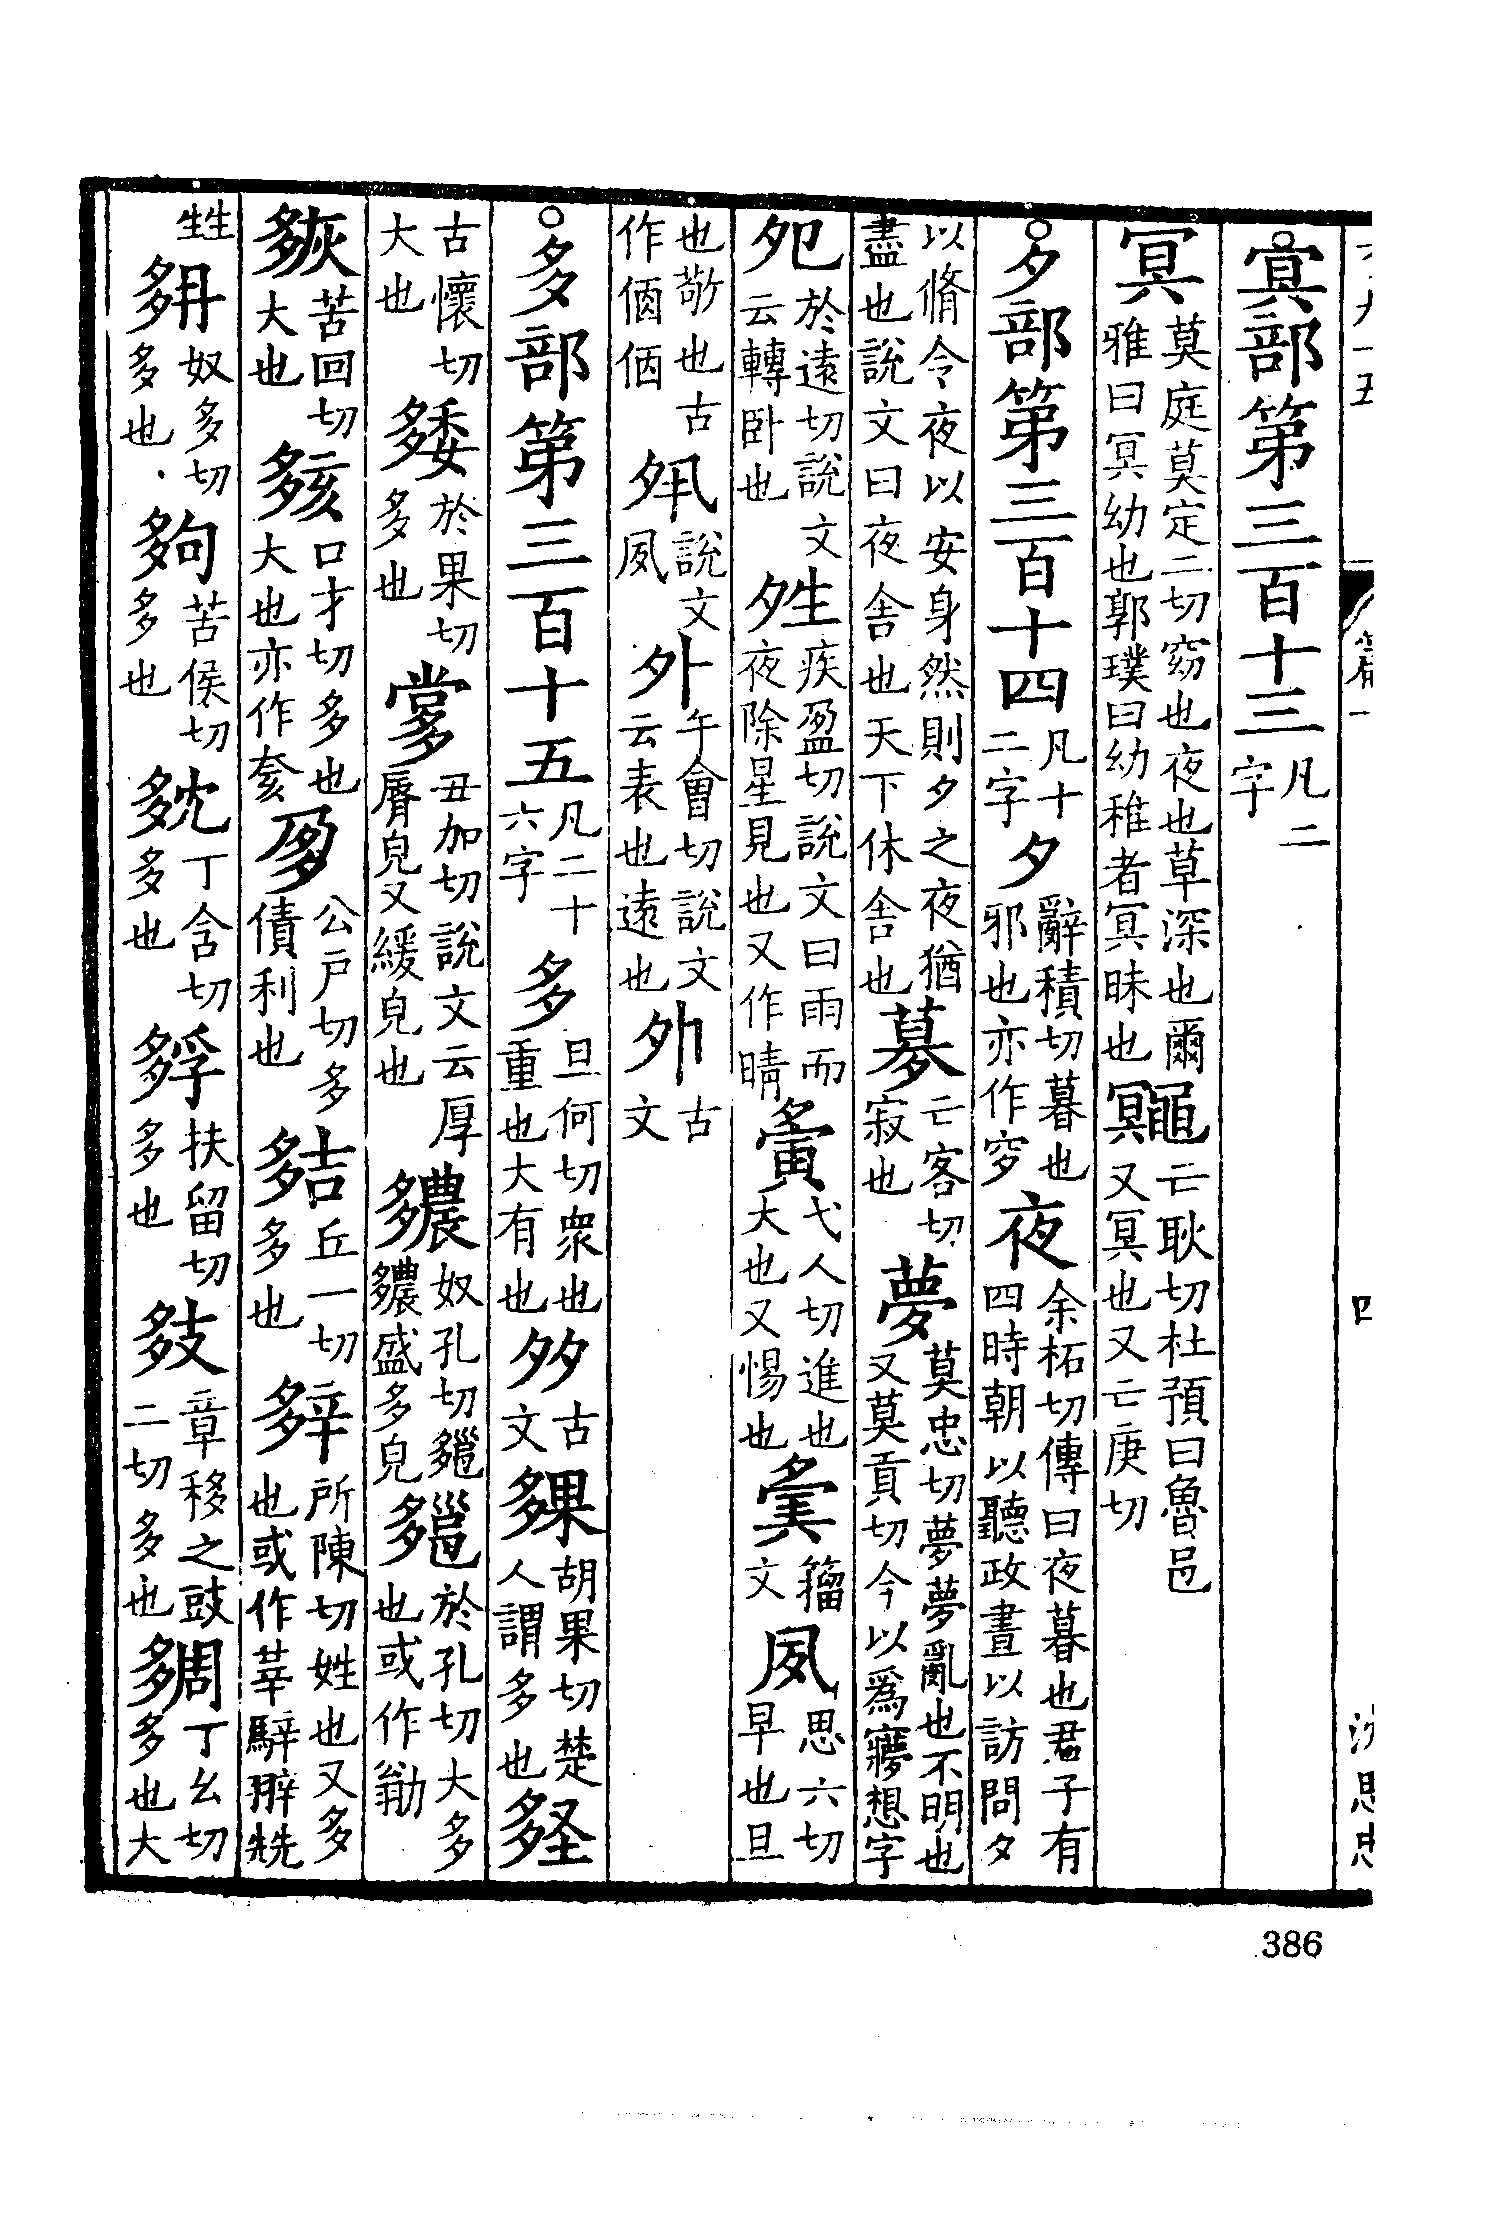 冥部第三百十三凡二字
冥莫庭莫定二切窈也夜也草深也爾雅曰冥幼也郭璞曰幼稚者冥昧也鼆亡耿切杜預曰魯邑又冥也又亡庚切
夕部第三百十四凡十二字夕辭積切暮也邪也亦作穸夜余柘切傳曰夜暮也君子有四時朝以聽政晝以訪問夕
以脩令夜以安身然則夕之夜猶盡也說文曰夜舍也天下休舍也募亡客切寂也夢莫忠切夢夢亂也不明也又莫貢切今以爲㝱想字
夗於遠切說文云轉卧也夝疾盈切說文曰雨而夜除星見也又作晴夤弋人切進也大也又惕也𡖐籀文夙思六切早也旦
也敬也古作㑉𠈇𡖊說文夙外午會切說文云表也遠也𡖄古文
多部第三百十五凡二十六字多旦何切衆也重也大有也𡖇古文夥胡果切楚人謂多也䂐
古懷切大也𡖿於果切多也𡗉丑加切說文云厚脣皃又緩皃也𡗋奴孔切𡗋盛多皃於孔切大多也或作㔙
苦回切大也𡖪口才切多也大也亦作奒夃公戶切多債利也𡖟丘一切多也𡖼所陳切姓也又多也或作莘駪兟
甡𡖔奴多切多也够苦侯切多也丁含切多也𡖬扶留切多也章移之豉二切多也丁幺切多也大
四
386